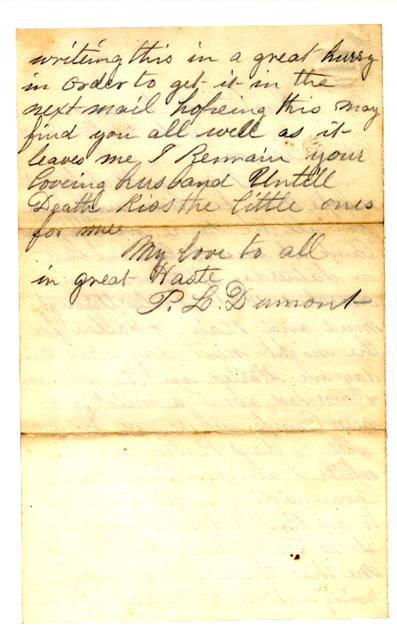 writeing this in a great hurry
in order to get it in the
next mail hopeing this may
find you all well as it
leaves me, I Remain your
loveing husband Untill
Death Kiss the little ones
for me
My love to all
in great Haste
P. L. Dumont